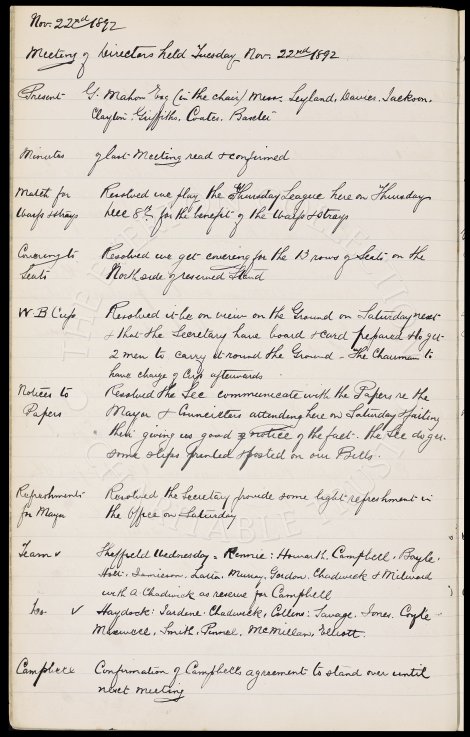 Nov. 22nd 1892
Meeting of Directors held Tuesday Nov. 22nd 1892
Present G. Mahon Esq (in the chair) Messrs. Leyland, Davies, Jackson,
Clayton, Griffiths, Coates, Baxter
Minutes of last Meeting read & confirmed
Match for Resolved we play the Thursday League here on Thursday
Waifs & strays Dec 8th for the benefit of the Waifs & strays
Covering to Resolved we get covering for the 13 rows of Seats on the
Seats North side of reserved Stand
W.B Cup Resolved it be on view on the Ground on Saturday next
& that the Secretary have board & card prepared & to get
2 men to carry it round the Ground - The Chairman to
have charge of Cup afterwards
Notices to Resolved the Sec communicate with the Papers re the
Papers Mayor & Councillors attending here on Saturday & failing
their giving us good notice of the fact. the Sec do get
some slips printed & posted on our Bills.
Refreshments Resolved the Secretary provide some light refreshment in
for Mayor the Office on Saturday
Team v Sheffield Wednesday. Rennie: Howarth, Campbell, Boyle
Holt: Jamieson, Latta. Murray, Gordon, Chadwick & Milward
with A Chadwick as reserve for Campbell
do v Haydock: Jardine: Chadwick, Collins: Savage. Jones. Coyle
Maxwell, Smith, Pinnel, McMillan, Elliott.
Campbell Confirmation of Campbells agreement to stand over until
next meeting